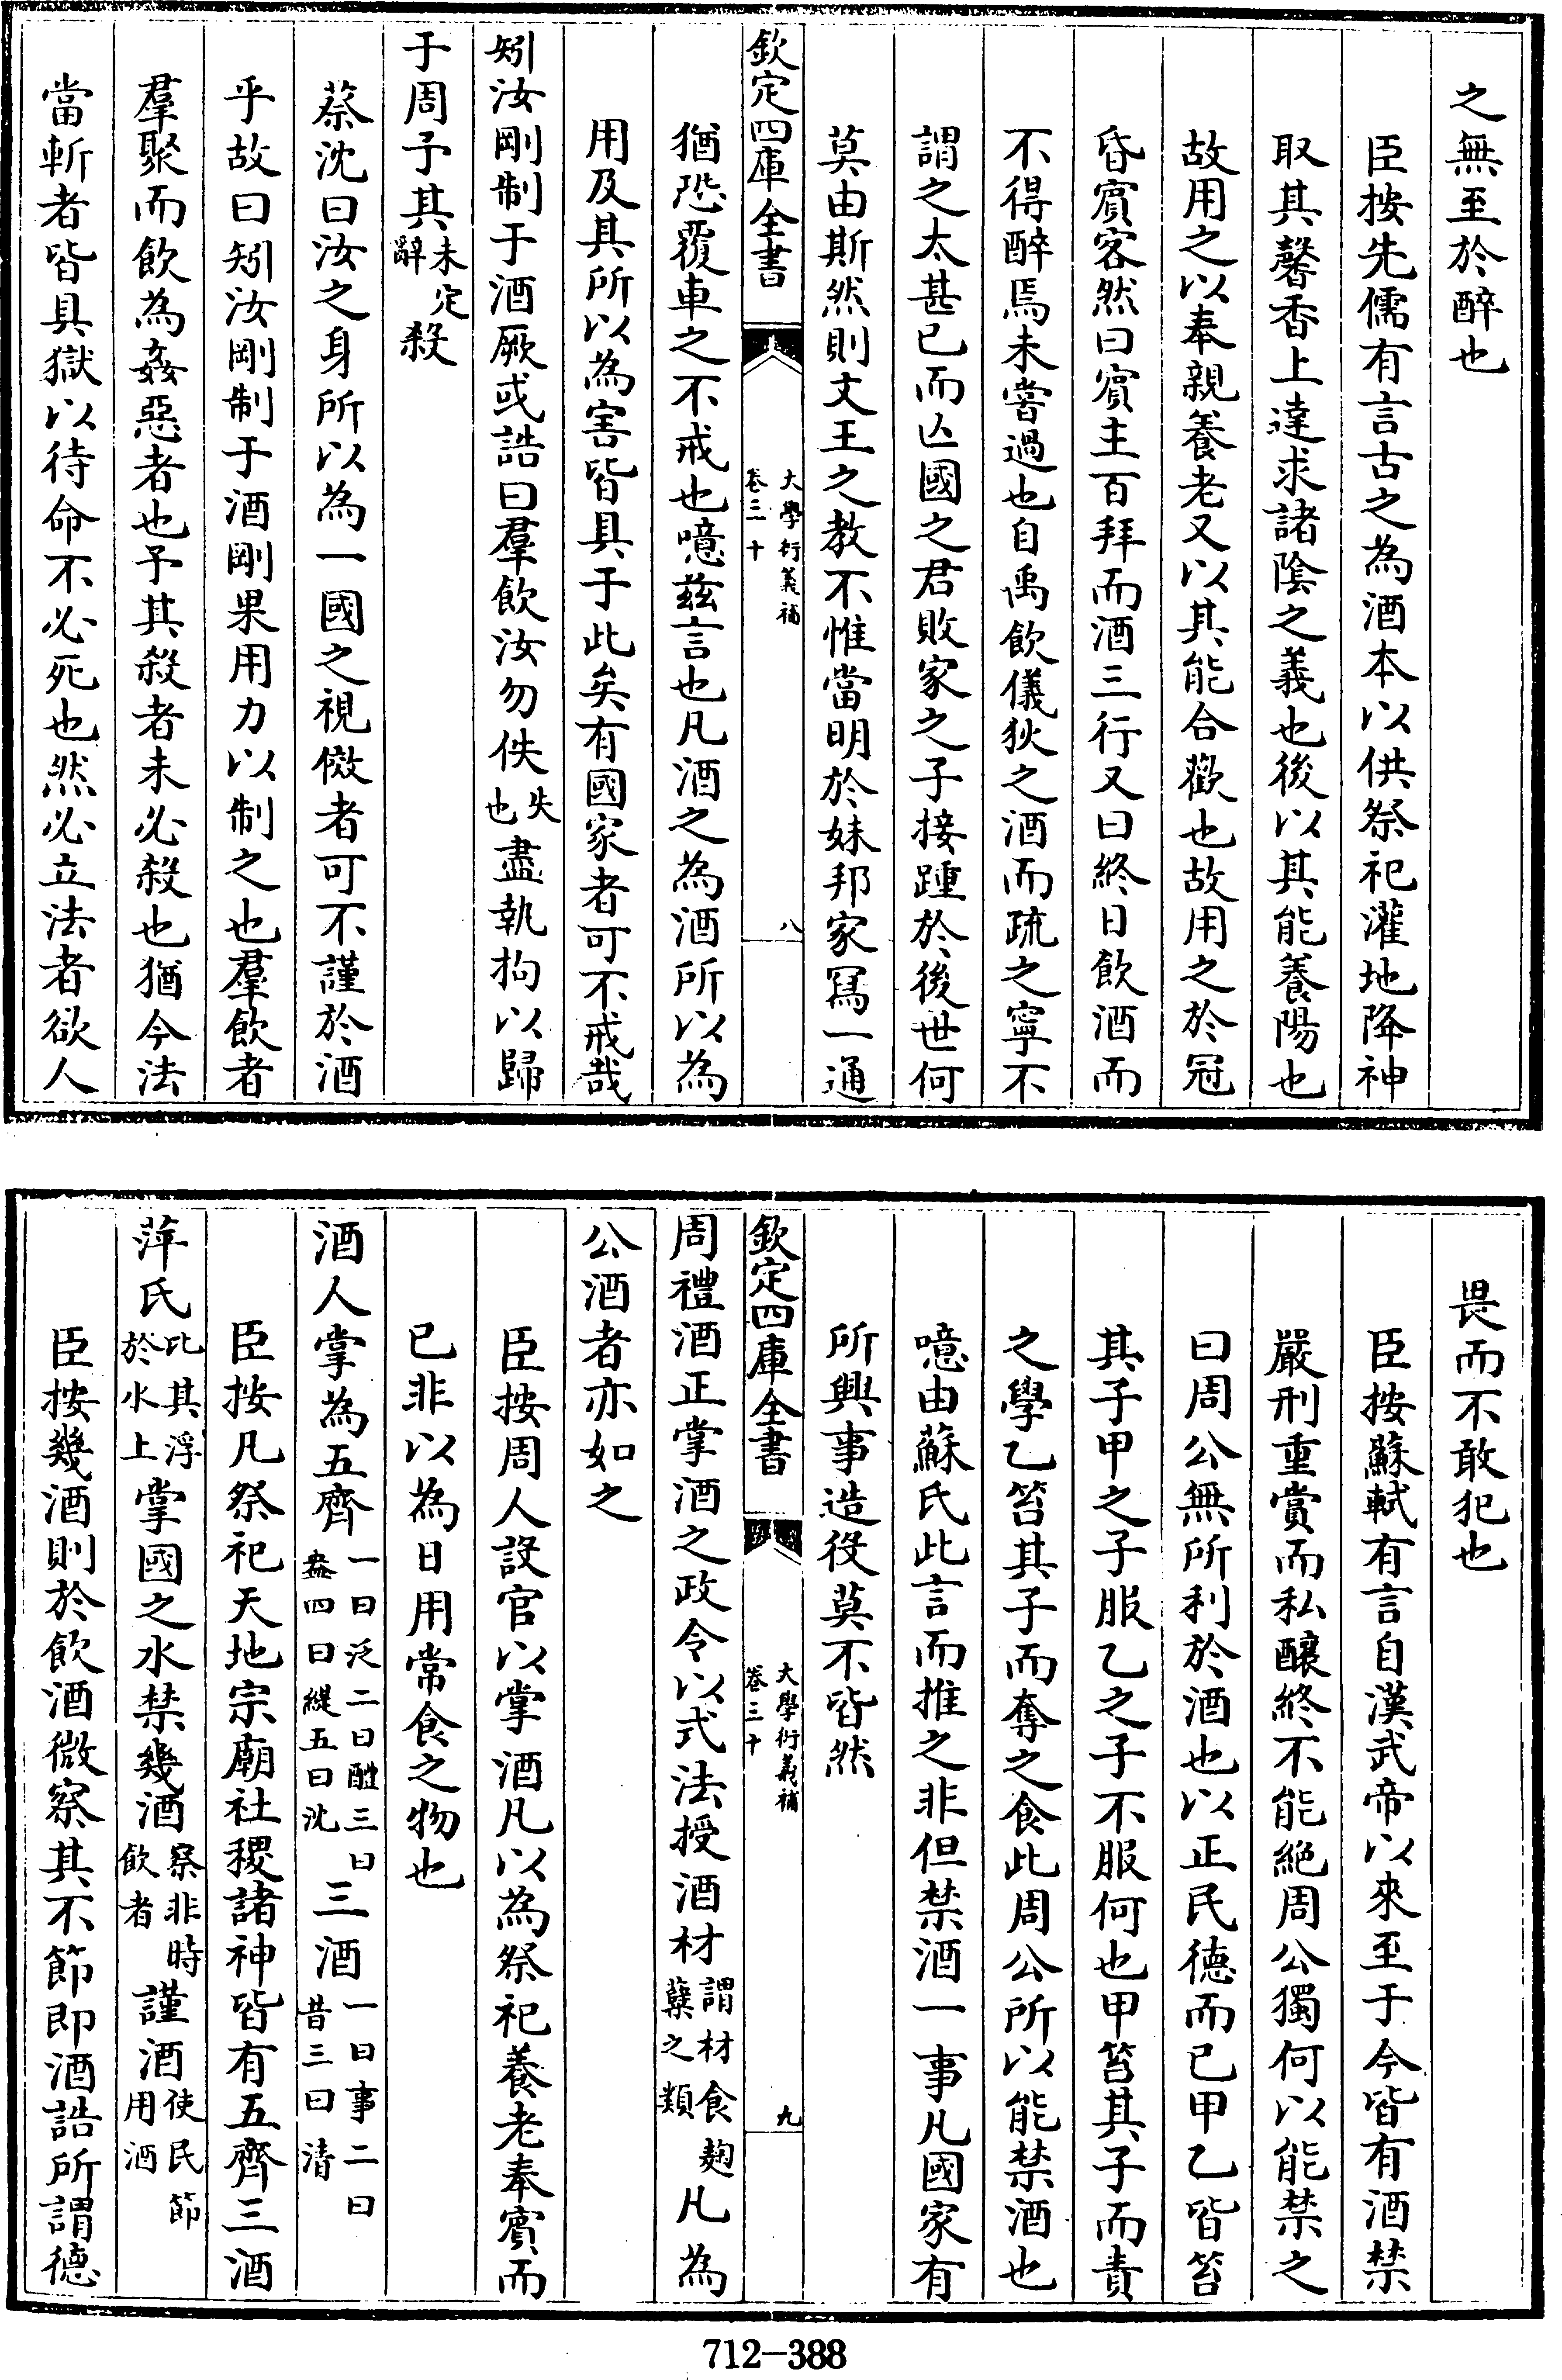 之無至於醉也
臣按先儒有言古之為酒本以供祭祀灌地降神
取其馨香上達求諸陰之義也後以其能養陽也
故用之以奉親養老又以其能合歡也故用之於冠
昏賓客然曰賓主百拜而酒三行又曰終日飲酒而
不得醉焉未嘗過也自禹飲儀狄之酒而疏之寧不
謂之太甚已而亾國之君敗家之子接踵於後世何
莫由斯然則文王之教不惟當明於妹邦家寫一通
欽定四庫全書
大學衍義補
卷三十
八
猶恐覆車之不戒也噫兹言也凡酒之為酒所以為
用及其所以為害皆具于此矣有國家者可不戒哉
矧汝剛制于酒厥或誥曰羣飲汝勿佚失也盡執拘以歸
于周予其未定辭殺
蔡沈曰汝之身所以為一國之視傚者可不謹於酒
乎故曰矧汝剛制于酒剛果用力以制之也羣飲者
羣聚而飲為姦惡者也予其殺者未必殺也猶今法
當斬者皆具獄以待命不必死也然必立法者欲人
畏而不敢犯也
臣按蘇軾有言自漢武帝以來至于今皆有酒禁
嚴刑重賞而私釀終不能絕周公獨何以能禁之
曰周公無所利於酒也以正民德而已甲乙皆笞
其子甲之子服乙之子不服何也甲笞其子而責
之學乙笞其子而奪之食此周公所以能禁酒也
噫由蘇氏此言而推之非但禁酒一事凡國家有
所興事造役莫不皆然
欽定四庫全書
大學衍義補
卷三十
九
周禮酒正掌酒之政令以式法授酒材謂材食麴糵之類凡為
公酒者亦如之
臣按周人設官以掌酒凡以為祭祀養老奉賓而
已非以為日用常食之物也
酒人掌為五齊一曰泛二曰醴三曰盎四曰緹五曰沈三酒一曰事二曰昔三曰清
臣按凡祭祀天地宗廟社稷諸神皆有五齊三酒
萍氏比其浮於水上掌國之水禁幾酒察非時飲者謹酒使民節用酒
臣按幾酒則於飲酒微察其不節即酒誥所謂德
712-388